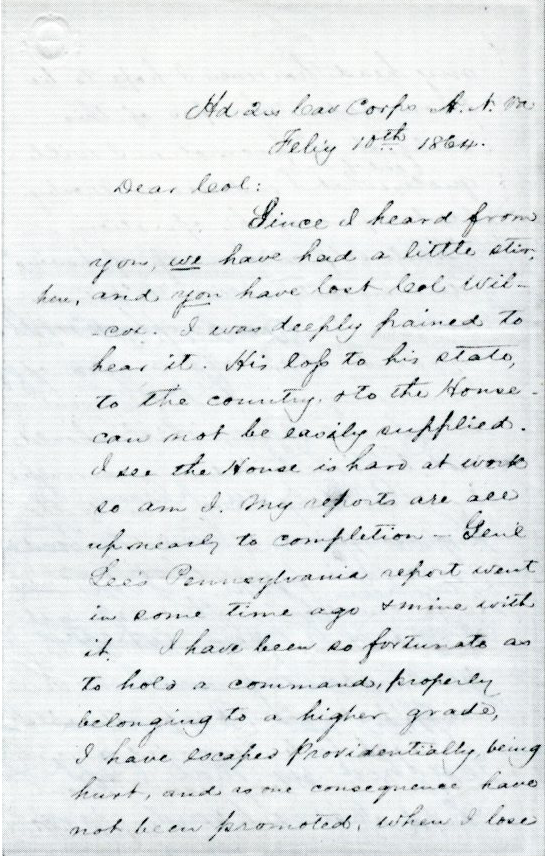 Hd Qrs Cav Corps A. N. Va
Feby 10th 1864.
Dear Col:
Since I heard from
you, we have had a little stir,
here, and you have lost Col Wil-
cox. I was deeply pained to
hear it. His loss to his state,
to the country, & to the House -
can not be easily supplied.
I see the House is hard at work
so am I. My reports are all
up nearly to completion - Genl
Lee's Pennsylvania report went
in some time ago & mine with
it. I have been so fortunate as
to hold a command, properly
belonging to a higher grade,
I have escaped Providentially, being
hurt, and as one consequence have
not been promoted, when I lose